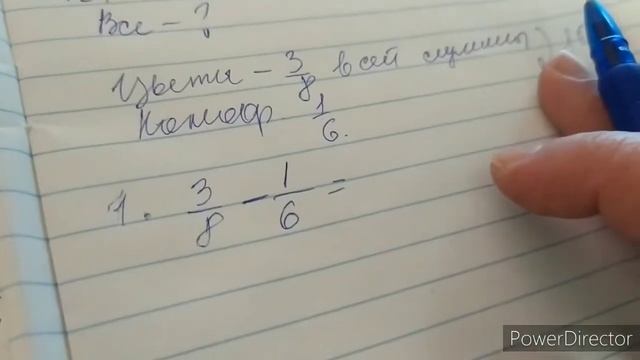 Все - ?
Цветы - 3/8 всей суммы
Конф. 1/6.
1. 3/8 - 1/6 =
PowerDirector